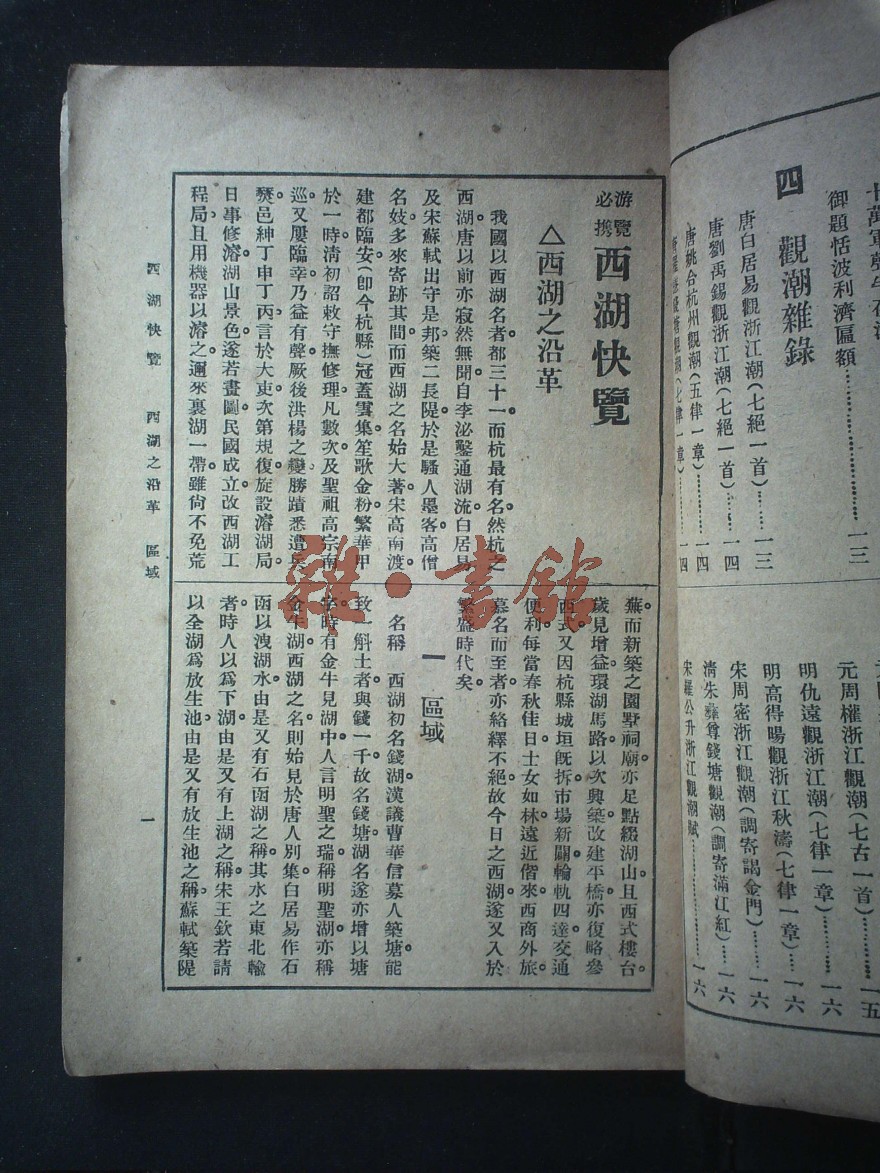 御題恬波利濟匾額……一三
四 觀潮雜錄
唐白居易觀浙江潮(七絕一首)……一三
唐劉禹錫觀浙江潮(七絕一首)……一四
唐姚合杭州觀潮(五律一章)……一四
元周權浙江觀潮(七古一首)……一五
明仇遠觀浙江潮(七律一章)……一六
明高得暘觀浙江秋濤(七律一章)……一六
宋周密浙江觀潮(調寄謁金門)……一六
淸朱彝尊錢塘觀潮(調寄滿江紅)……一六
宋羅公升浙江觀潮賦……一六
游覽必携 西湖快覽
△西湖之沿革
我國以西湖名者都三十一而杭最有名然杭之
西湖唐以前亦寂然無聞自李泌鑿通湖流白居易
及宋蘇軾出守是邦築二長隄於是騷人墨客高僧
名妓多來寄跡其間而西湖之名始大著宋高南渡
建都臨安(卽今杭縣)冠蓋雲集笙歌金粉繁華甲
於一時淸初詔敕守撫修理凡數次及聖祖高宗南
巡又屢臨幸乃益有聲厥後洪楊之變勝蹟悉遭兵
燹邑紳丁申丁丙言於大吏次第規復旋設濬湖局
日事修濬湖山景色遂若畫圖民國成立改西湖工
程局且用機器以濬之邇來裏湖一帶雖尙不免荒
蕪而新築之園墅祠廟亦足點綴湖山且西式樓台
歲見增益環湖馬路以次興築改建平橋亦復略參
西式又因杭縣城垣旣拆市場新闢輪軌四達交通
便利每當春秋佳日士女如林遠近偕來西商外旅
慕名而至者亦絡繹不絕故今日之西湖遂又入於
繁盛時代矣
一 區域
名稱 西湖初名錢湖漢議曹華信募人築塘能
致一斛土者與錢一千故名錢塘湖名遂亦增以塘
字時有金牛見湖中人言明聖之瑞稱明聖湖亦稱
金牛湖西湖之名則始見於唐人別集白居易作石
函以洩湖水由是又有石函湖之稱其水之東北輸
者時人以爲下湖由是又有上湖之稱宋王欽若請
以全湖爲放生池由是又有放生池之稱蘇軾築隄
西湖快覽 西湖之沿革 區域
一
雜·書館